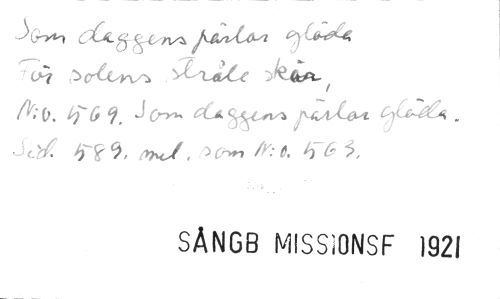 Som daggens pärlar glöda
För solens stråle skär,
N:o. 569. Som daggens pärlar glöda.
Sid. 589. mel. som N:o. 563.
SÅNGB MISSIONSF 1921